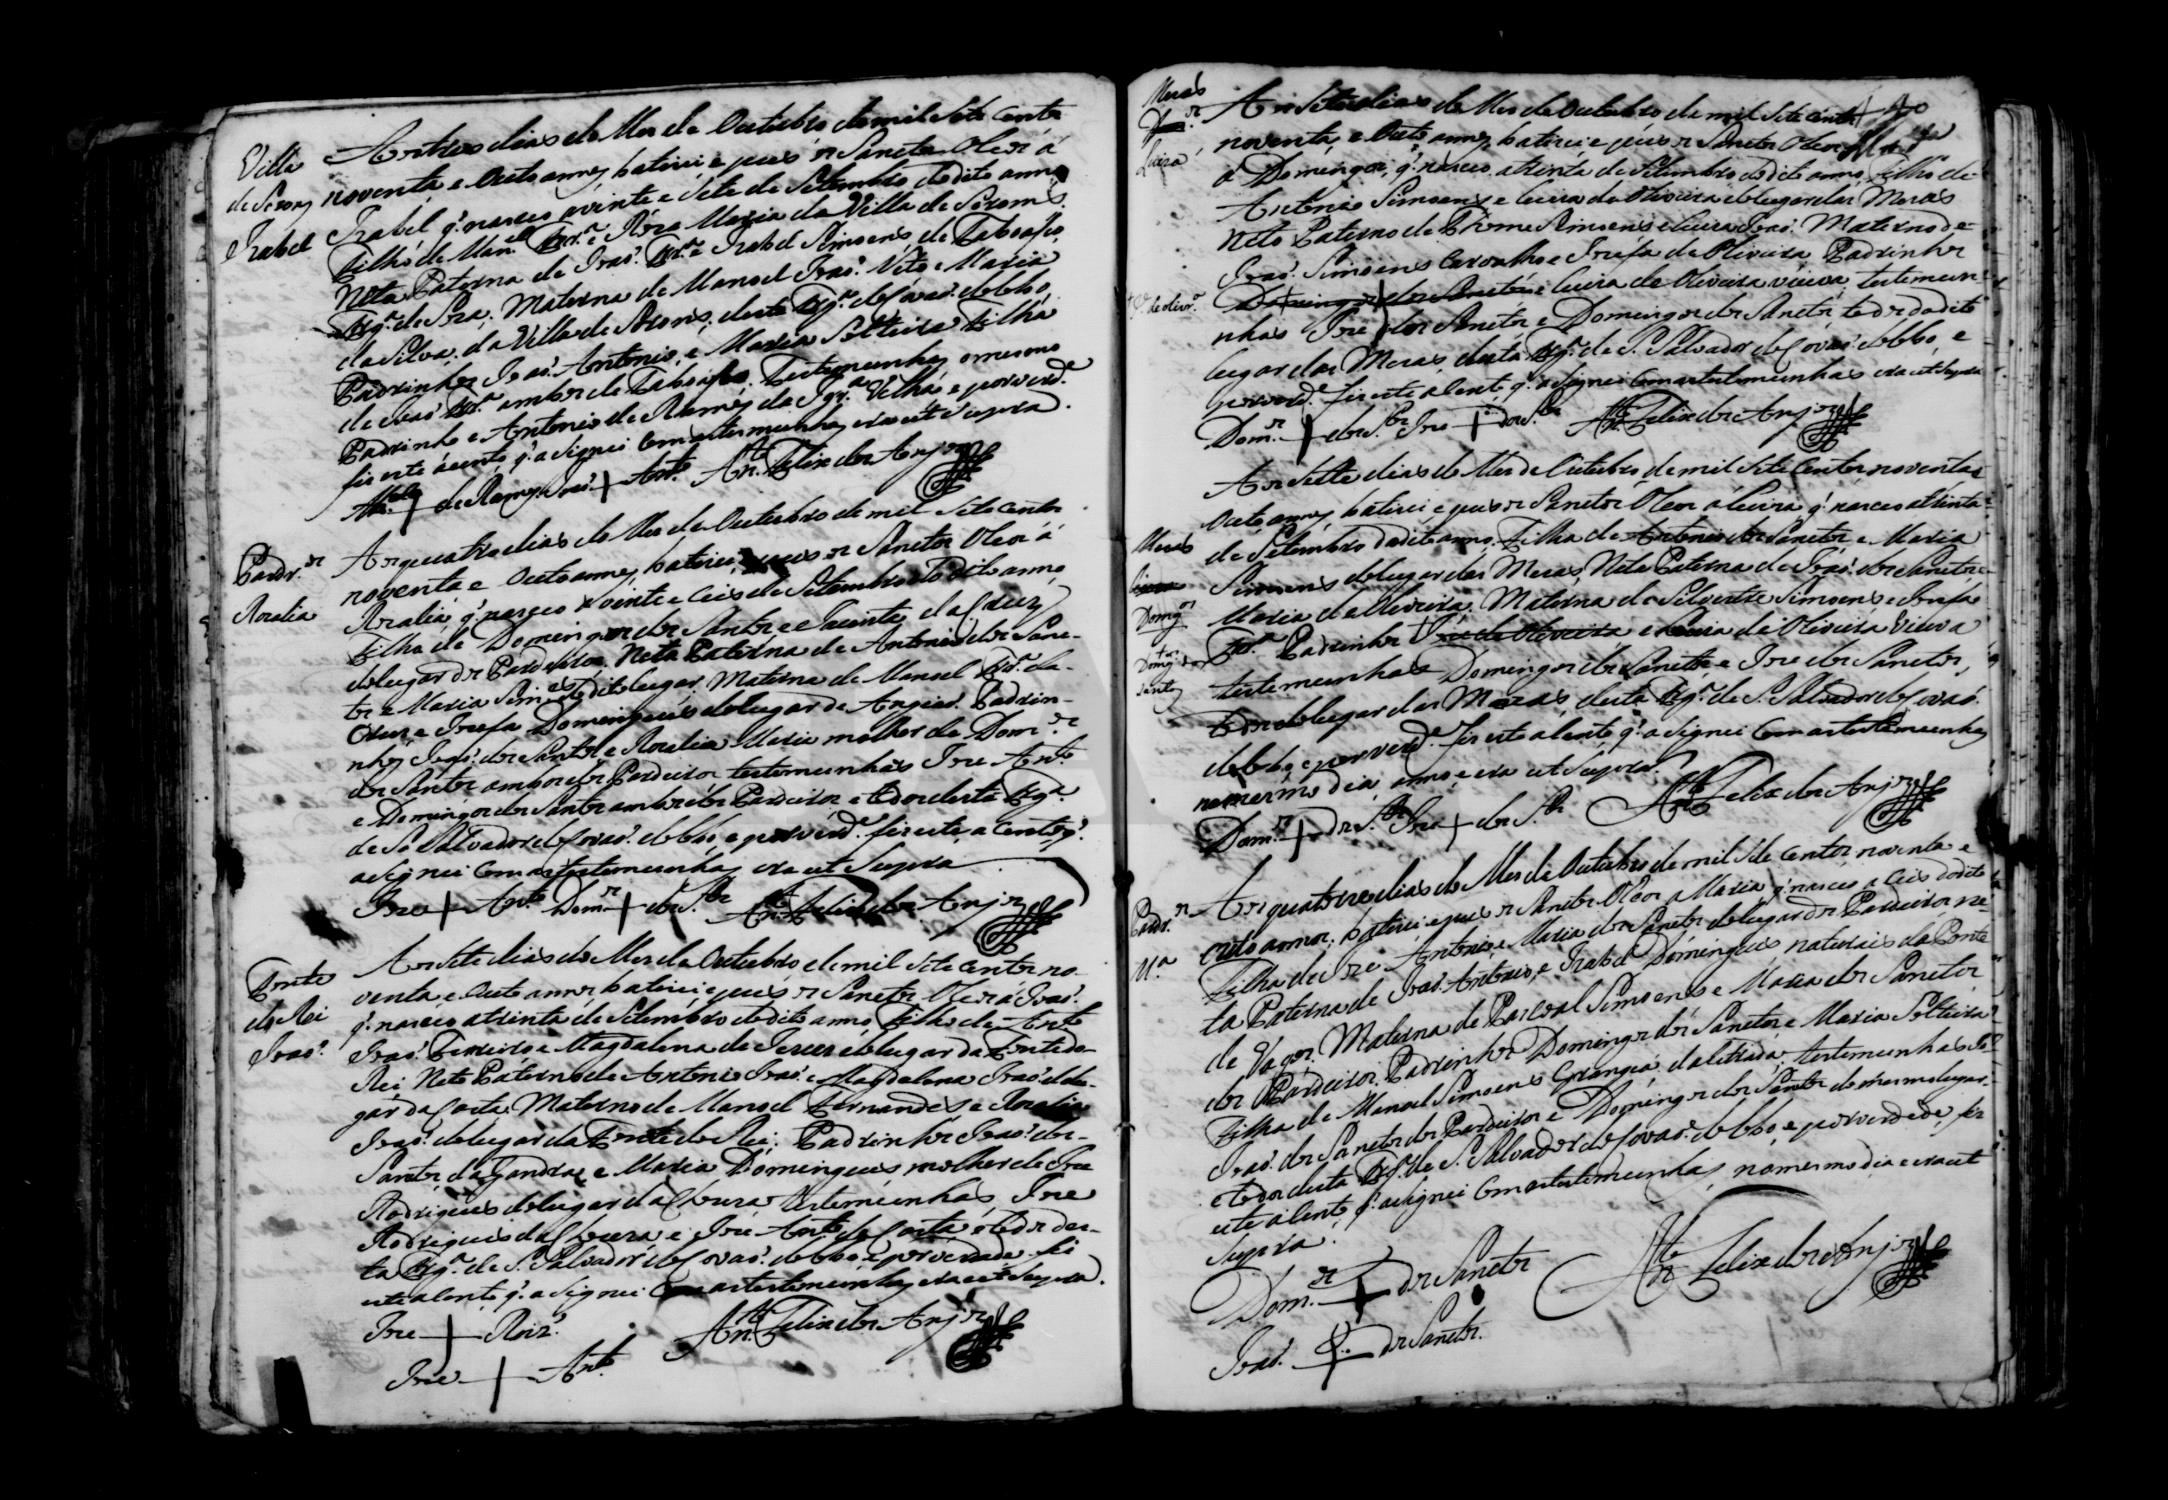 Villa
de Sorens
Izabel
Aos tres dias do Mes de Outubro de mil sete centos
noventa e Outo annos, baticei e pus os Sanctos Oleos á
Izabel q. nasceo a vinte e Sete de Setembro do dito anno
Filha de Man.el e Roza Maria da Villa de Sorens.
Neta Paterna de Joaõ e Izabel Simoens, de
Frg.a de Materna de Manoel Joaõ Neto e Maria
da Silva, da Villa de Sorens, desta Frg.a de Covaõ do Lobo
Padrinhos Joaõ Antonio, e Maria Solteira Filha
de Joaõ ambos de Testemunhas o mesmo
Padrinho e Antonio de Ramos da Velha e por verd.e
fiz este acento q. asignei com as testemunhas era ut Supra.
de Ramos Joaõ + Ant.o An.to Felix dos Anjos
Pard.os
Rozalia
Aos quatro dias do Mes de Outubro de mil Sete Centos
noventa e Outo annos, baticei e pus os Sanctos Oleos á
Rozalia q. nasceo a vinte e Ceis de Setembro do dito anno
Filha de Domingos dos Santos e Jacinta da Cruz
do lugar dos Pardeiros. Neta Paterna de Antonio dos San-
tos e Maria do dito lugar. Materna de Manoel da
Cruz e Jozefa Domingues do lugar de Padrin-
nhos Joaõ dos Santos, e Rozalia Maria molher de Dom.os
dos Santos ambos dos Pardeiros testemunhas Joze Ant.o
e Domingos dos Santos ambos dos Pardeiros e todos desta Frg.a
de S. Salvador de Covaõ do Lobo, e por verd.e fiz este acento q.
asignei com as testemunhas era ut Supra
Joze + Ant.o Dom.os + dos S.tos An.to Felix dos Anjos
Fonte
do Rei
Joaõ
Aos Sete dias do Mes de Outubro de mil Sete Centos no-
venta e Outo annos baticei e pus os Sanctos Oleos á Joaõ
q. nasceo a trinta de Setembro do dito anno, filho de Ant.o
Joaõ Ferreiro e Magdalena de Jezus do lugar da Fonte do
Rei Neto Paterno de Antonio Joaõ e Magdalena Joaõ do lu-
gar da Costa. Materno de Manoel Fernandes e Rozalia
Joaõ do lugar da Fonte do Rei. Padrinhos Joaõ dos
Santos da Gandra, e Maria Domingues molher de Joze
Rodrigues do lugar da testemunhas Joze
Rodrigues da e Joze Ant.o da Costa e todos des-
ta Frg.a de S. Salvador de Covaõ do Lobo e por verdade fiz
este acento q. asignei com as testemunhas era ut Supra.
Joze + Roiz.
An.to Felix dos Anjos
Joze + Ant.o
Mesas
Dom.os
Aos Sete dias do Mes de Outubro de mil Sete Centos
noventa, e Outo annos, baticei e pus os Sanctos Oleos
á Domingos, q. nasceo a trinta de Setembro do dito anno, filho de
Antonio Simoens e Luiza de Oliveira do lugar das Mesas
Neto Paterno de Thome Simoens e Luiza Joaõ. Materno de
Joaõ Simoens Carvalho e Jozefa de Oliveira Padrinhos
Domingos dos Sanctos e Luiza de Oliveira viuva, testemun-
nhas Joze dos Sanctos e Domingos dos Sanctos todos do dito
lugar das Mesas, desta Frg.a de S. Salvador de Covaõ do Lobo, e
por verd.e fiz este acento, q. asignei com as testemunhas era ut Supra
Dom.os + dos S.tos Joze + dos S.tos An.to Felix dos Anjos
Mesas
Domg.os
Domg.os dos
Santos
Aos Sette dias do Mes de Outubro, de mil Sete Centos noventa e
Outo annos, baticei e pus os Sanctos Oleos á Luiza q. nasceo a trinta
de Setembro do dito anno. Filha de Antonio dos Sanctos e Maria
Simoens do lugar das Mesas, Neta Paterna de Joaõ dos Sanctos e
Maria de Oliveira. Materna de Silvestre Simoens e Jozefa
Padrinhos e Luiza de Oliveira Viuva
testemunhas Domingos dos Sanctos, e Joze dos Sanctos,
todos do lugar das Mesas, desta Frg.a de S. Salvador de Covaõ
do Lobo, e por verd.e fiz este acento q. asignei com as testemunhas
no mesmo dia, anno, e era ut Supra.
Dom.os + dos S.tos Joze + dos S.tos An.to Felix dos Anjos
Pard.os
M.a
Aos quatorze dias do Mes de Outubro de mil Sete Centos noventa e
outo annos, baticei e pus os Sanctos Oleos a Maria q. nasceo a Ceis do dito
Filha de Joze Antonio, e Maria dos Sanctos do lugar dos Pardeiros, ne-
ta Paterna de Joaõ Antonio, e Izabel Domingues, naturais da Ponte
de Vagos. Materna de Pascoal Simoens e Maria dos Sanctos
dos Pardeiros. Padrinhos Domingos dos Sanctos e Maria Solteira
Filha de Manoel Simoens testemunhas
Joaõ dos Sanctos dos Pardeiros e Domingos dos Santos do mesmo lugar
e todos desta Frg.a de S. Salvador de Covaõ do Lobo, e por verdade, fiz
este acento, q. asignei com as testemunhas, no mesmo dia e era ut
Supra.
Dom.os + dos Sanctos An.to Felix dos Anjos
Joaõ + dos Sanctos.